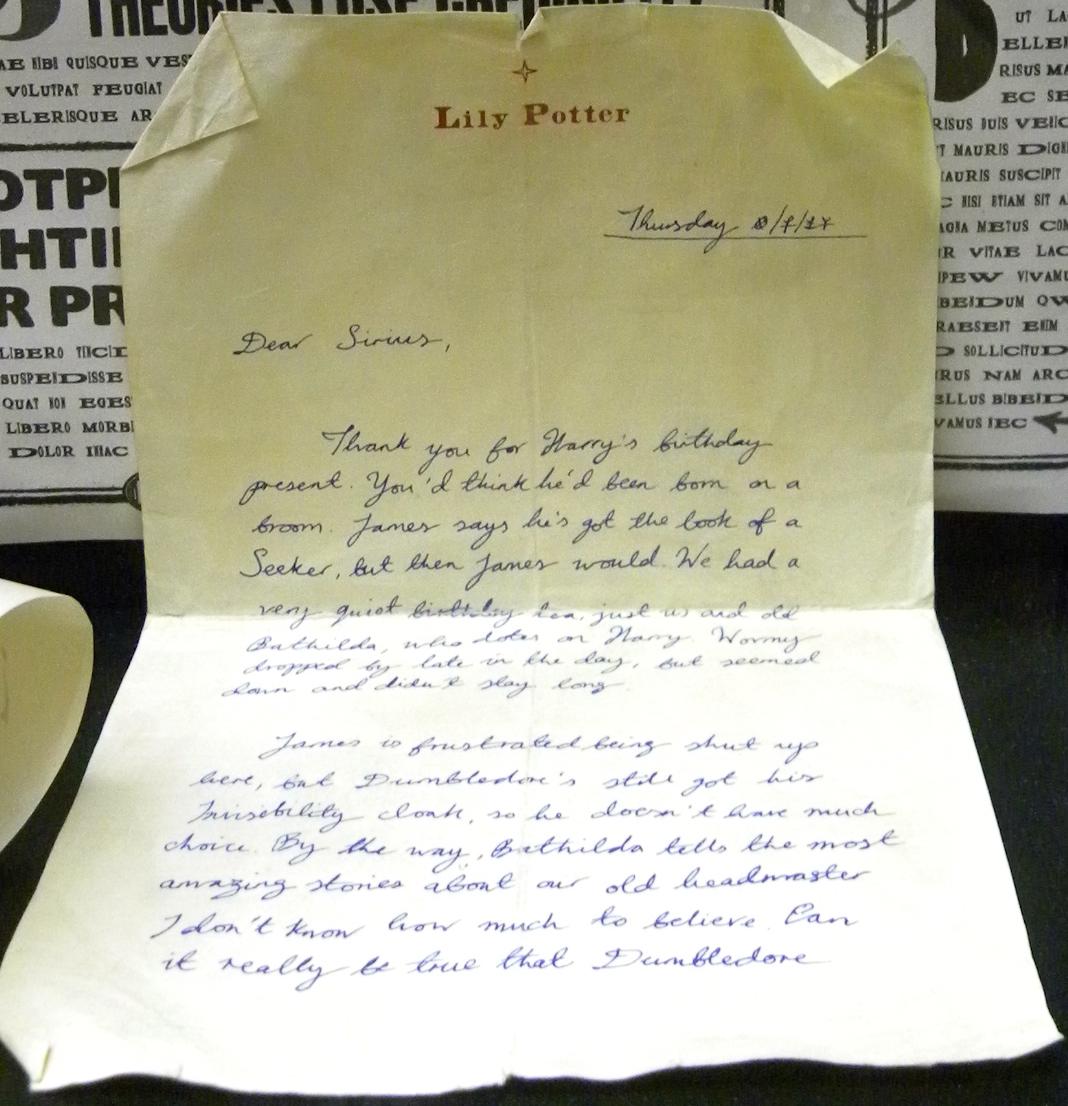 THEORIES LOSE CREDIBILITY
AE NIBI QUISQUE VES
VOLUTPAT FEUGIAT
ELERISQUE AR
OTP
HTI
R PR
LIBERO TINCID
SUSPENDISSE
QUAT NON EGES
LIBERO MORB
DOLOR IIIAC
Lily Potter
Thursday
Dear Sirius,
Thank you for Harry's birthday
present. You'd think he'd been born on a
broom. James says he's got the look of a
Seeker, but then James would. We had a
very quiet birthday tea, just us and old
Bathilda, who dotes on Harry. Wormy
dropped by late in the day, but seemed
down and didn't stay long.
James is frustrated being shut up
here, but Dumbledore's still got his
Invisibility cloak, so he doesn't have much
choice. By the way, Bathilda tells the most
amazing stories about our old headmaster
I don't know how much to believe. Can
it really be true that Dumbledore
UT LA
ELLE
RISUS MA
EC SE
RISUS DUIS VEHIC
T MAURIS DIGN
AURIS SUSCIPIT
C NISI ETIAM SIT A
AGNA METUS CON
R VITAE LAC
IPEW VIVAMU
BENDUM QW
RAESENT ENIM
D SOLLICITUD
RUS NAM ARC
ELLUS BIBEND
VAMUS NEC